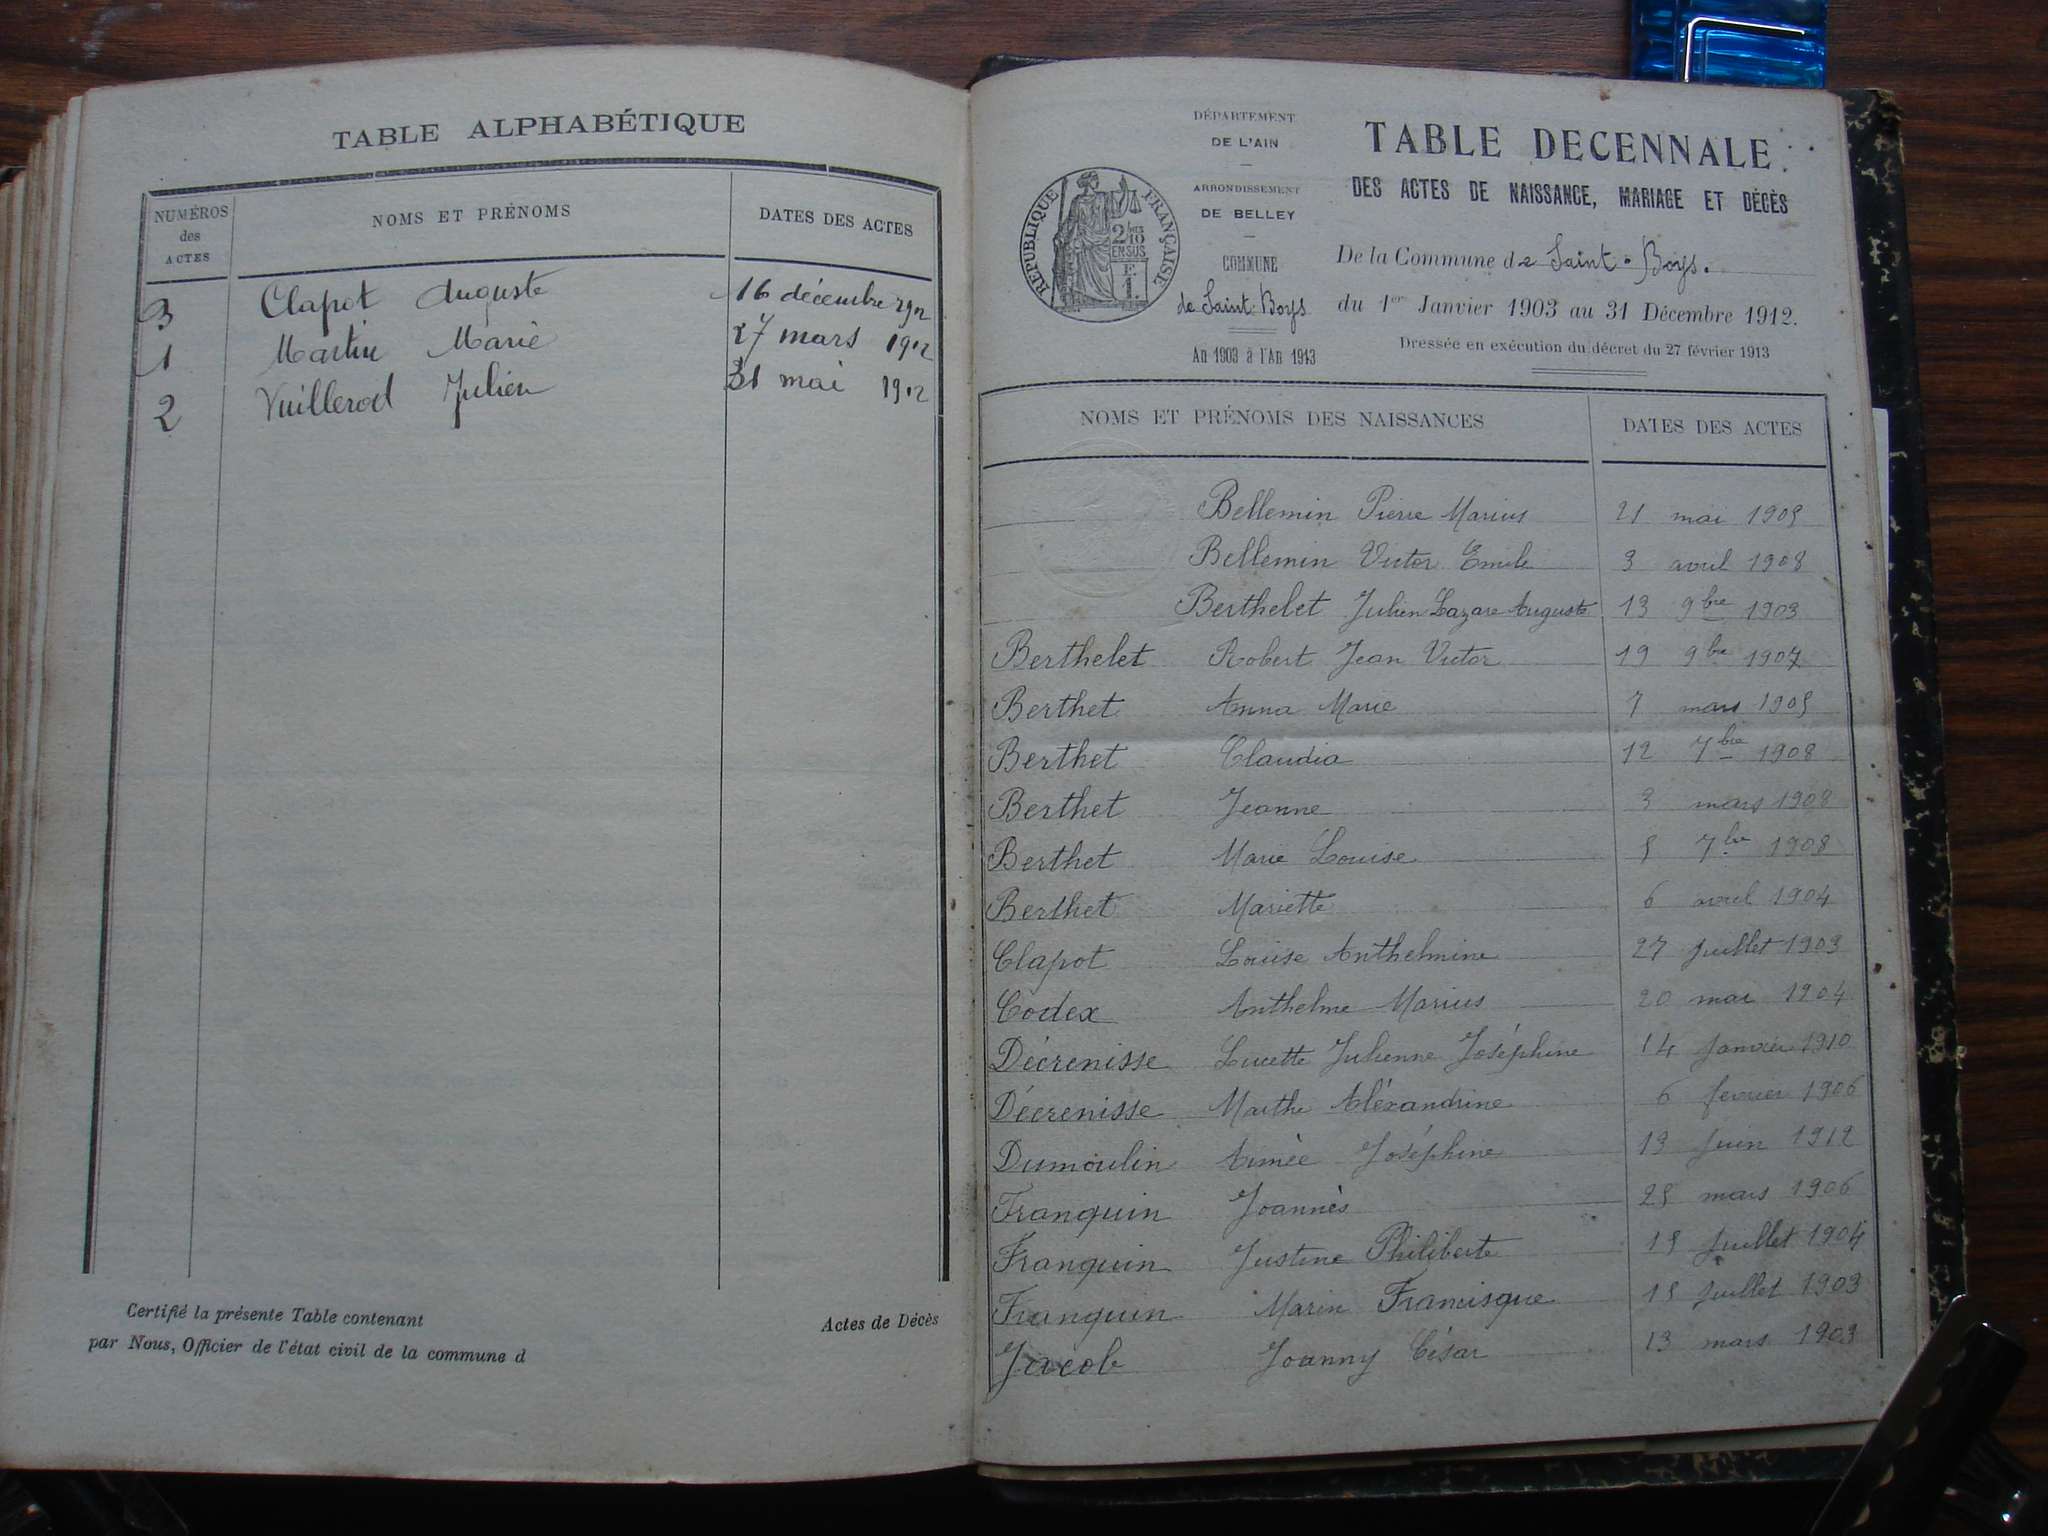 TABLE ALPHABÉTIQUE
NUMÉROS des ACTES NOMS ET PRÉNOMS DATES DES ACTES
3 Clapot Auguste 16 décembre 1912
1 Martin Marie 27 mars 1912
2 Vuillerod Julien 31 mai 1912
Certifié la présente Table contenant Actes de Décès
par Nous, Officier de l'état civil de la commune d
DÉPARTEMENT
DE L'AIN
ARRONDISSEMENT
DE BELLEY
COMMUNE
de Saint-Boys
An 1903 à l'An 1913
RÉPUBLIQUE FRANÇAISE
2/10
EN SUS
TABLE DECENNALE
DES ACTES DE NAISSANCE, MARIAGE ET DÉCÈS
De la Commune de Saint-Boys.
du 1er Janvier 1903 au 31 Décembre 1912.
Dressée en exécution du décret du 27 février 1913
NOMS ET PRÉNOMS DES NAISSANCES DATES DES ACTES
Bellemin Pierre Marius 21 mai 1905
Bellemin Victor Emile 3 avril 1908
Berthelet Julien Lazare Auguste 13 9bre 1903
Berthelet Robert Jean Victor 19 9bre 1907
Berthet Anna Marie 7 mars 1905
Berthet Claudia 12 7bre 1908
Berthet Jeanne 3 mars 1908
Berthet Marie Louise 5 7bre 1908
Berthet Mariette 6 avril 1904
Clapot Louise Anthelmine 27 Juillet 1903
Codex Anthelme Marius 20 mai 1904
Décrenisse Lucette Julienne Joséphine 14 Janvier 1910
Décrenisse Marthe Aléxandrine 6 fevrier 1906
Dumoulin Aimée Joséphine 13 Juin 1912
Franquin Joannès 25 mars 1906
Franquin Justine Philiberte 15 Juillet 1904
Franquin Marin Francisque 15 Juillet 1903
Jacob Joanny César 13 mars 1903